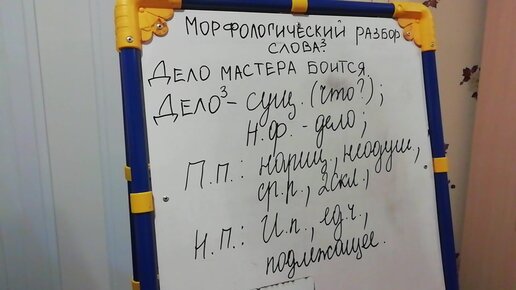 МОРФОЛОГИЧЕСКИЙ РАЗБОР
СЛОВА³
ДЕЛО МАСТЕРА БОИТСЯ.
ДЕЛО³ - сущ. (что?);
н.ф. - дело;
П.п.: нариц., неодуш.,
ср.р., 2скл.,
Н.П.: И.п., ед.ч.,
подлежащее.